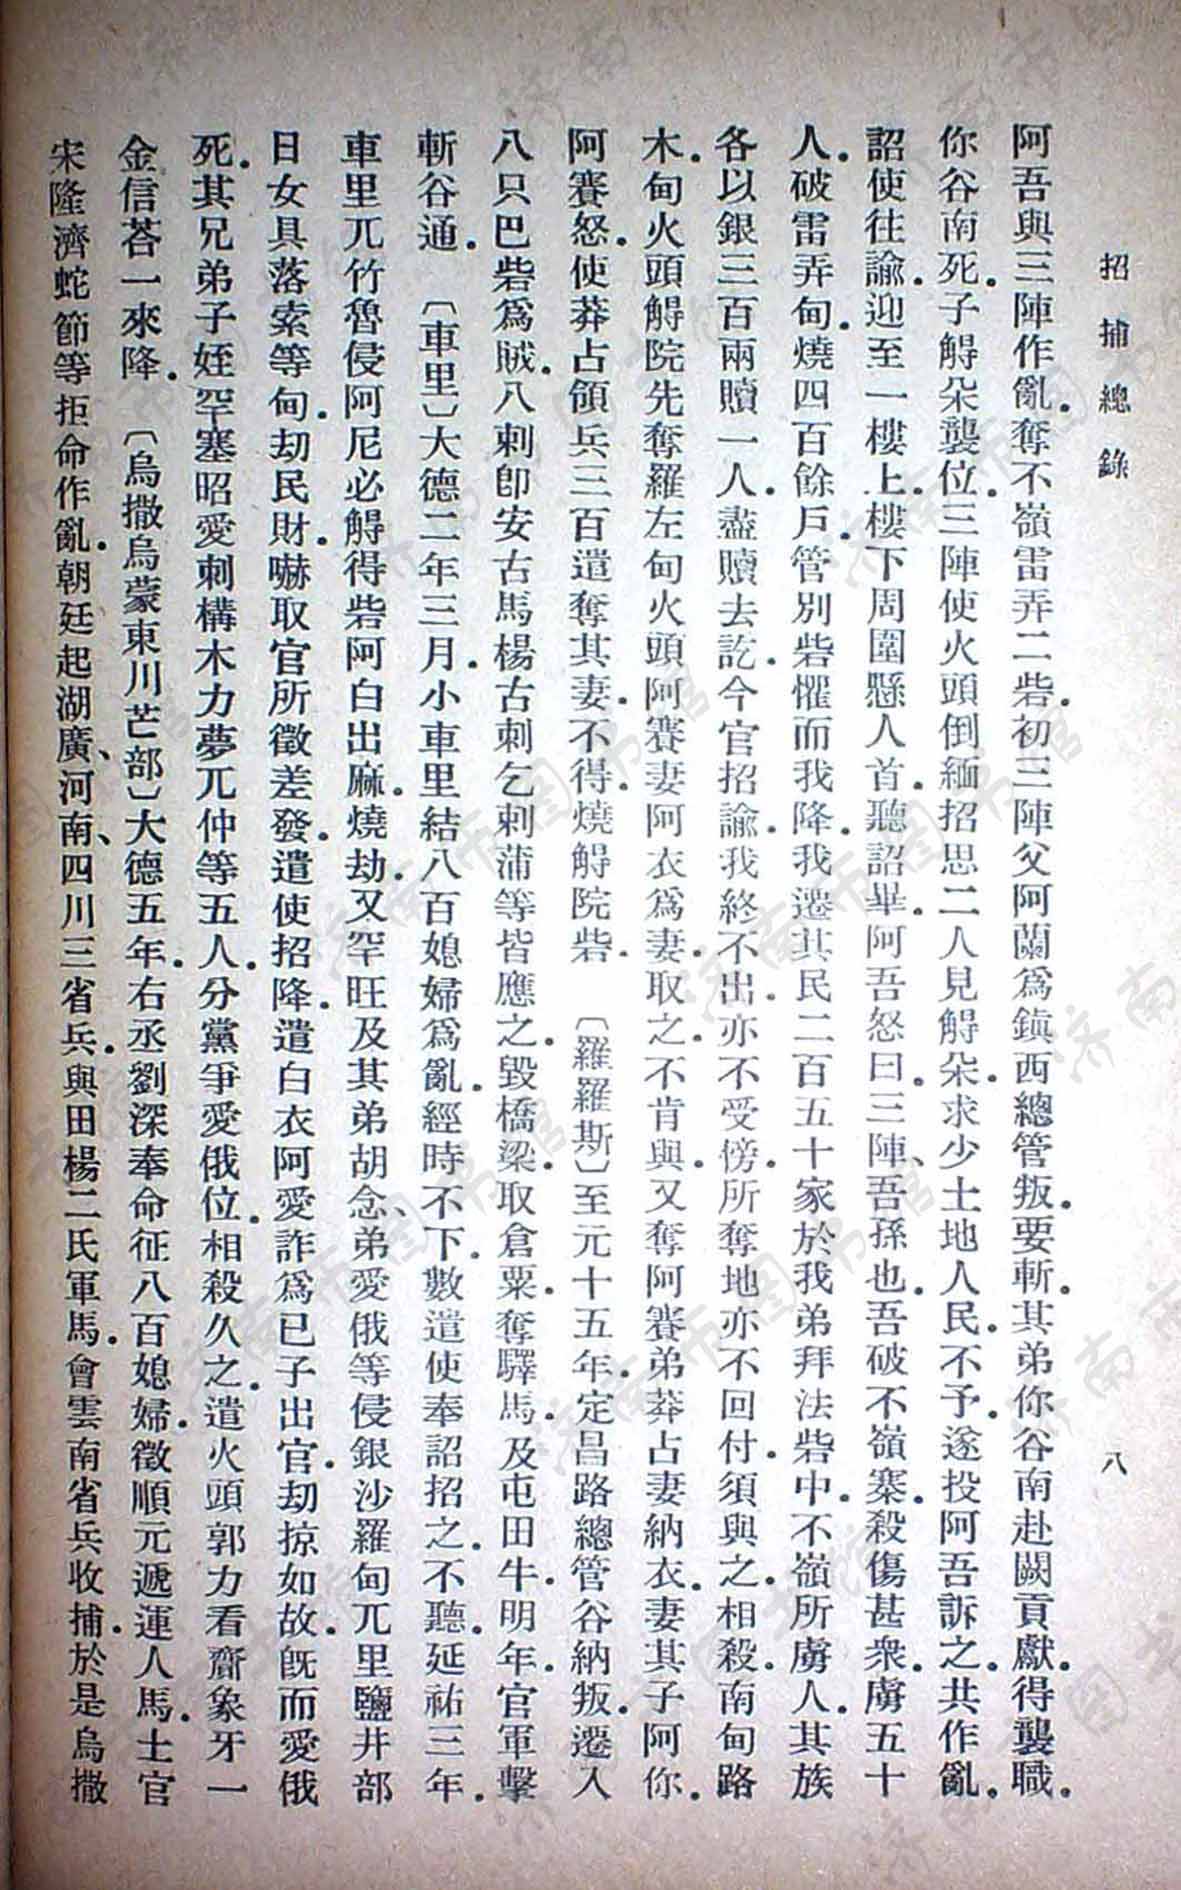 招捕總錄　八
阿吾與三陣作亂．奪不嶺雷弄二砦．初三陣父阿蘭爲鎭西總管叛．要斬．其弟你谷南赴闕貢獻．得襲職．
你谷南死．子艀朵襲位．三陣使火頭倒緬招思二人見艀朵．求少土地人民．不予．遂投阿吾訴之．共作亂．
詔使往諭．迎至一樓上．樓下周圍懸人首．聽詔畢．阿吾怒曰．三陣、吾孫也．吾破不嶺寨．殺傷甚衆．虜五十
人．破雷弄甸．燒四百餘戶．管別砦懼而我降．我遷其民二百五十家於我弟拜法砦中．不嶺所虜人．其族
各以銀三百兩贖一人．盡贖去訖．今官招諭．我終不出．亦不受傍．所奪地亦不回付．須與之相殺．南甸路
木．甸火頭艀院先奪羅左甸火頭阿賽妻阿衣爲妻．取之．不肯與．又奪阿賽弟莽占妻納衣．妻其子阿你．
阿賽怒．使莽占領兵三百遣奪其妻．不得．燒艀院砦．　〔羅羅斯〕至元十五年．定昌路總管谷納叛．遷入
八只巴砦爲賊．八剌卽安古馬楊古剌乞剌蒲等皆應之．毀橋梁．取倉粟．奪驛馬．及屯田牛．明年．官軍擊
斬谷通．　〔車里〕大德二年三月．小車里結八百媳婦爲亂．經時不下．數遣使奉詔招之．不聽．延祐三年．
車里兀竹魯侵阿尼必艀得砦阿白出麻．燒劫．又罕旺及其弟胡念、弟愛俄等侵銀沙羅甸兀里鹽井部
日女具落索等甸．劫民財．嚇取官所徵差發．遣使招降．遣白衣阿愛詐爲已子出官．劫掠如故．旣而愛俄
死．其兄弟子姪罕塞昭愛剌構木力夢兀仲等五人．分黨爭愛俄位．相殺久之．遣火頭郭力看齎象牙一
金信荅一來降．〔烏撒烏蒙東川芒部〕大德五年．右丞劉深奉命征八百媳婦．徵順元遞運人馬．土官
宋隆濟蛇節等拒命作亂．朝廷起湖廣、河南、四川三省兵．與田楊二氏軍馬．會雲南省兵收捕．於是烏撒